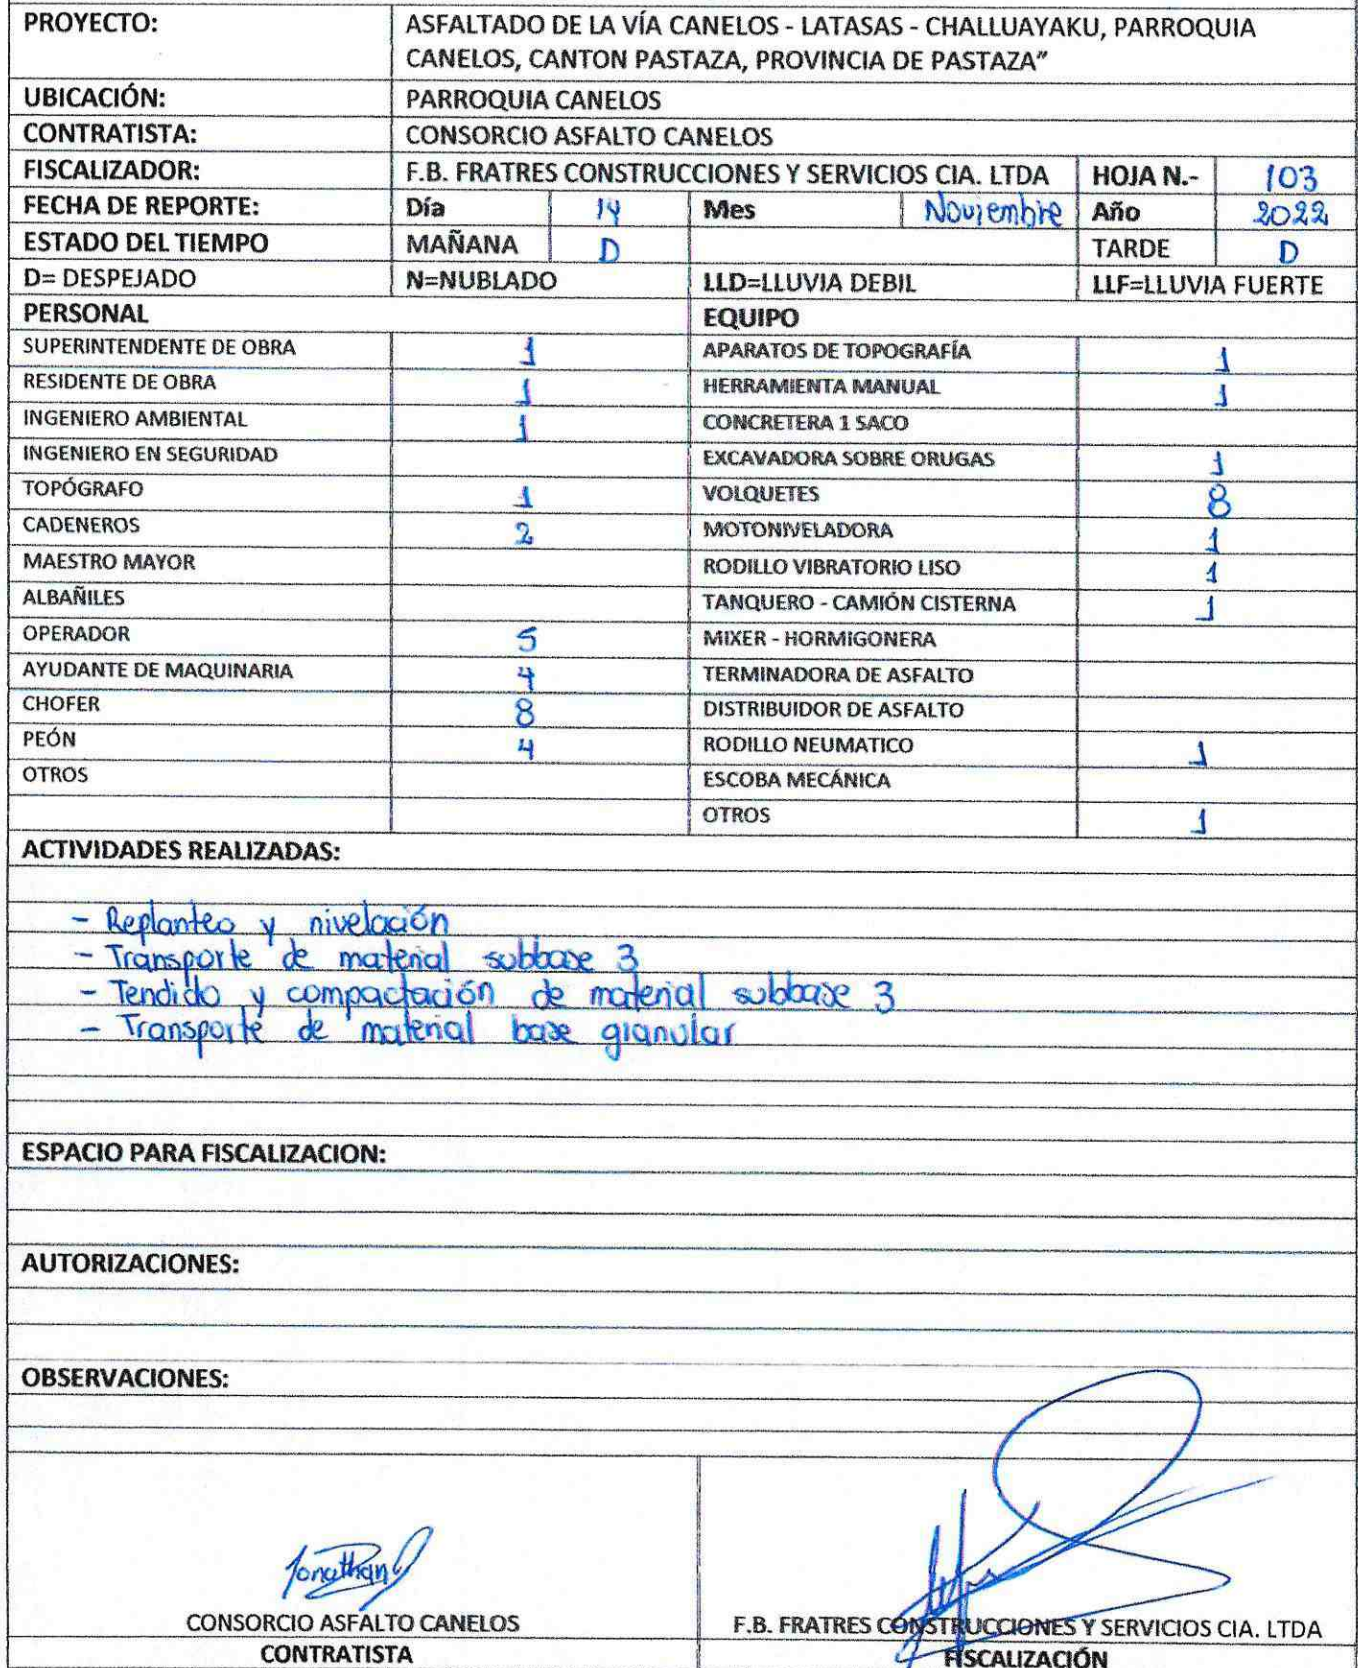 PROYECTO: ASFALTADO DE LA VÍA CANELOS - LATASAS - CHALLUAYAKU, PARROQUIA
CANELOS, CANTON PASTAZA, PROVINCIA DE PASTAZA”
UBICACIÓN: PARROQUIA CANELOS
CONTRATISTA: CONSORCIO ASFALTO CANELOS
FISCALIZADOR: F.B. FRATRES CONSTRUCCIONES Y SERVICIOS CIA. LTDA HOJA N.- 103
FECHA DE REPORTE: Día 14 Mes Noviembre Año 2022
ESTADO DEL TIEMPO MAÑANA D TARDE D
D= DESPEJADO N=NUBLADO LLD=LLUVIA DEBIL LLF=LLUVIA FUERTE
PERSONAL EQUIPO
SUPERINTENDENTE DE OBRA 1 APARATOS DE TOPOGRAFÍA 1
RESIDENTE DE OBRA 1 HERRAMIENTA MANUAL 1
INGENIERO AMBIENTAL 1 CONCRETERA 1 SACO
INGENIERO EN SEGURIDAD EXCAVADORA SOBRE ORUGAS 1
TOPÓGRAFO 1 VOLQUETES 8
CADENEROS 2 MOTONIVELADORA 1
MAESTRO MAYOR RODILLO VIBRATORIO LISO 1
ALBAÑILES TANQUERO - CAMIÓN CISTERNA 1
OPERADOR 5 MIXER - HORMIGONERA
AYUDANTE DE MAQUINARIA 4 TERMINADORA DE ASFALTO
CHOFER 8 DISTRIBUIDOR DE ASFALTO
PEÓN 4 RODILLO NEUMATICO 1
OTROS ESCOBA MECÁNICA
OTROS 1
ACTIVIDADES REALIZADAS:
- Replanteo y nivelación
- Transporte de material subbase 3
- Tendido y compactación de material subbase 3
- Transporte de material base granular
ESPACIO PARA FISCALIZACION:
AUTORIZACIONES:
OBSERVACIONES:
Jonathan
CONSORCIO ASFALTO CANELOS F.B. FRATRES CONSTRUCCIONES Y SERVICIOS CIA. LTDA
CONTRATISTA FISCALIZACIÓN